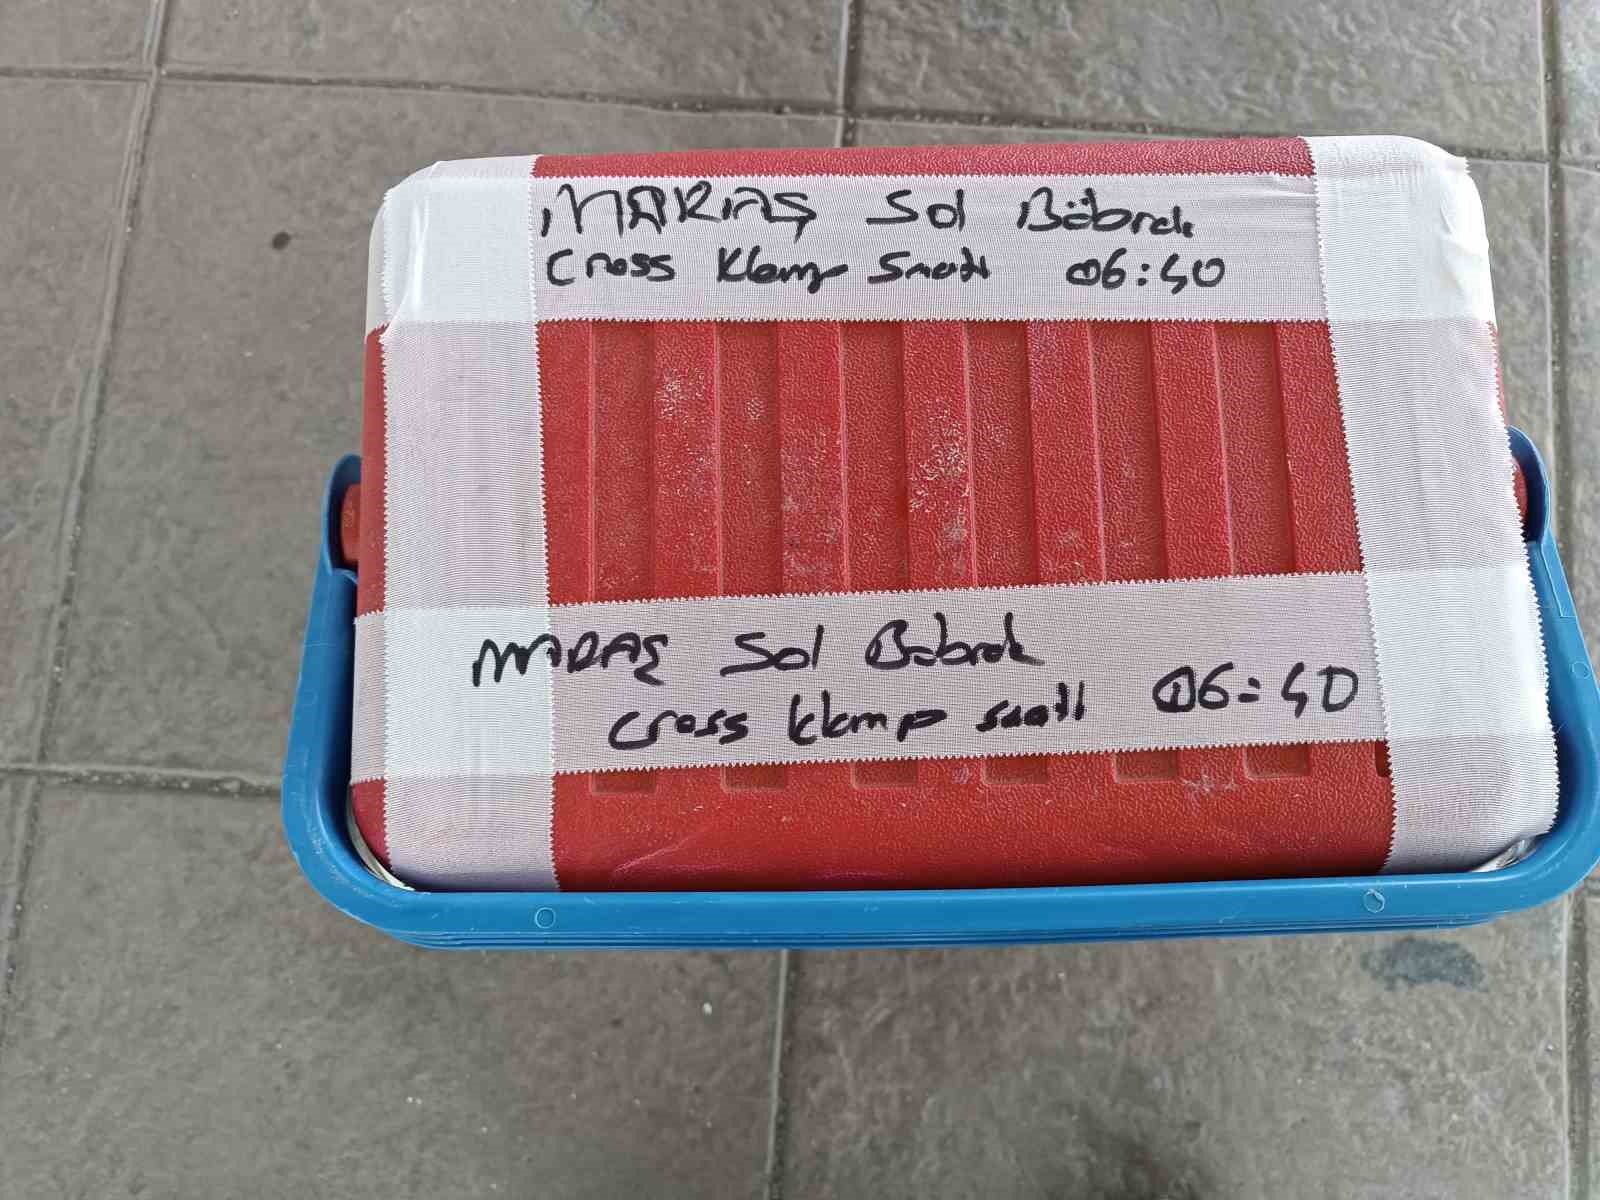 MARAŞ Sol Böbrek
Cross Klemp Saati 06:40
MARAŞ Sol Böbrek
Cross klemp saati 06:40